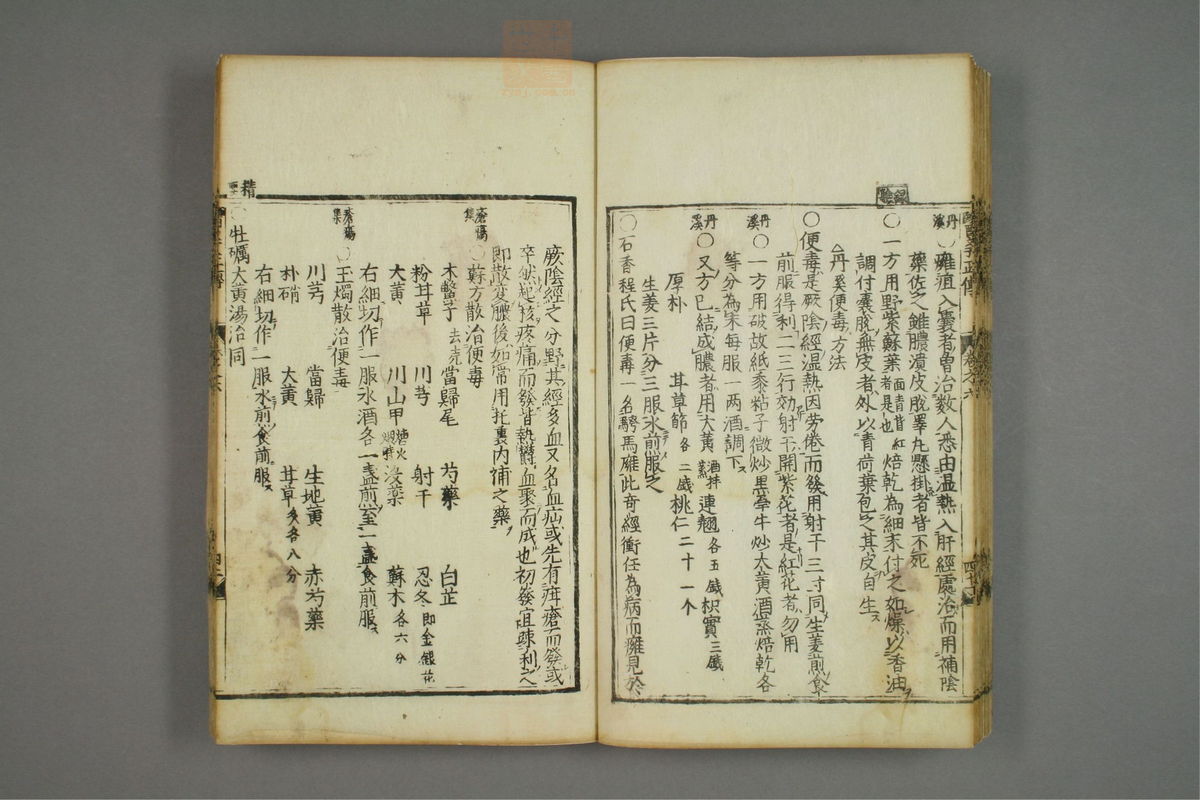 丹溪〇癰疽入囊者曾治数人悉由温熱入肝經處治而用補陰
藥佐之雖膿潰皮脫睪丸懸掛者皆不死
〇一方用野紫蘇葉面青背紅者是也焙乾為細末付之如燥以香油
調付囊脫無皮者外以青荷葉包之其皮自生
△丹溪便毒方法
〇便毒是厥陰經温熱因労倦而發用射干三寸同生姜煎食
前服得利二三行効射干開紫花者是紅花者勿用
丹溪〇一方用破故紙黍粘子微炒黒牽牛炒大黄酒蒸焙乾各
等分為末每服一两酒調下
丹溪〇又方已結成膿者用大黄酒拌蒸連翹各五戔枳實三戔
厚朴 甘草節各二戔桃仁二十一个
生姜三片分三服水煎服之
〇石香程氏曰便毒一名騎馬癰此奇經衝任為病而癰見於
厥陰經之分野其經多血又名血疝或先有疳瘡而發或
卒然起核疼痛而發皆熱鬱血聚而成也初發宜疎利之
即散変膿後如常用托裏内補之藥
瘡瘍集〇蘇方散治便毒
木鱉子去壳 當歸尾 芍藥 白芷
粉甘草 川芎 射干 忍冬即金銀花
大黄 川山甲 没藥 蘇木各六分
右細切作一服水酒各一盞煎至一盞食前服
瘡瘍集〇玉燭散治便毒
川芎 當歸 生地黄 赤芍藥
朴硝 大黄 甘草炙各八分
右細切作一服水煎食前服
精要〇牡礪大黄湯治同